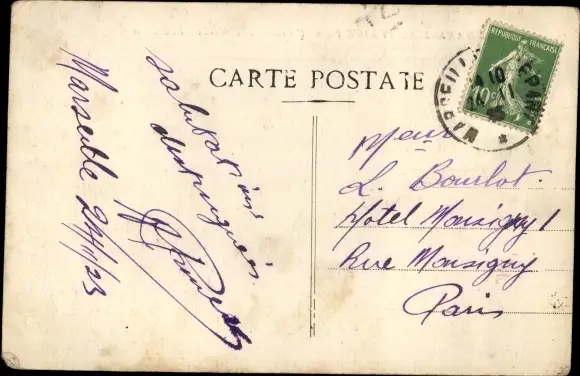 CARTE POSTALE
REPUBLIQUE FRANÇAISE
10c
MARSEILLE
EPARGNE
Marseille 24/1/23
salutations
distinguées
Meur
L. Bourlot.
Hotel Monsigny 1
Rue Monsigny
Paris